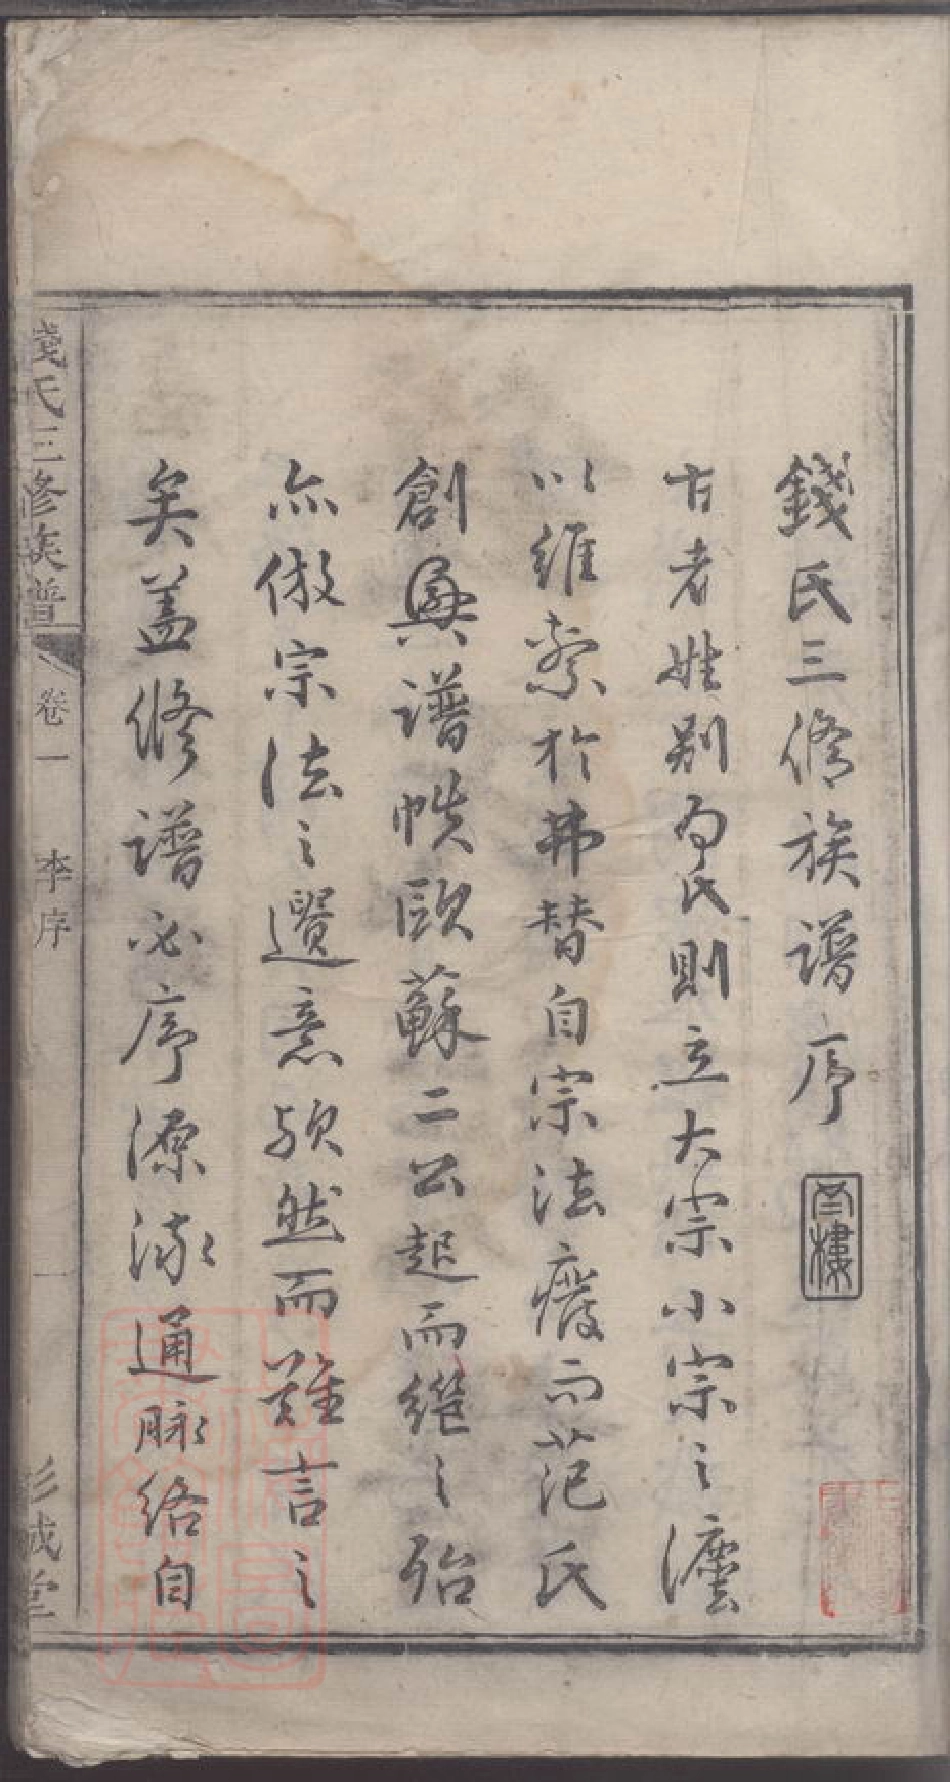 錢氏三脩族譜序
古者姓別爲氏則立大宗小宗之灋
以維繫於弗替自宗法廢而范氏
創興譜帙歐蘇二公起而繼之殆
亦倣宗法之遺意歟然而難言之
矣蓋修譜必序源流通脈絡自
錢氏三修族譜
卷一
李序
一
彭城堂